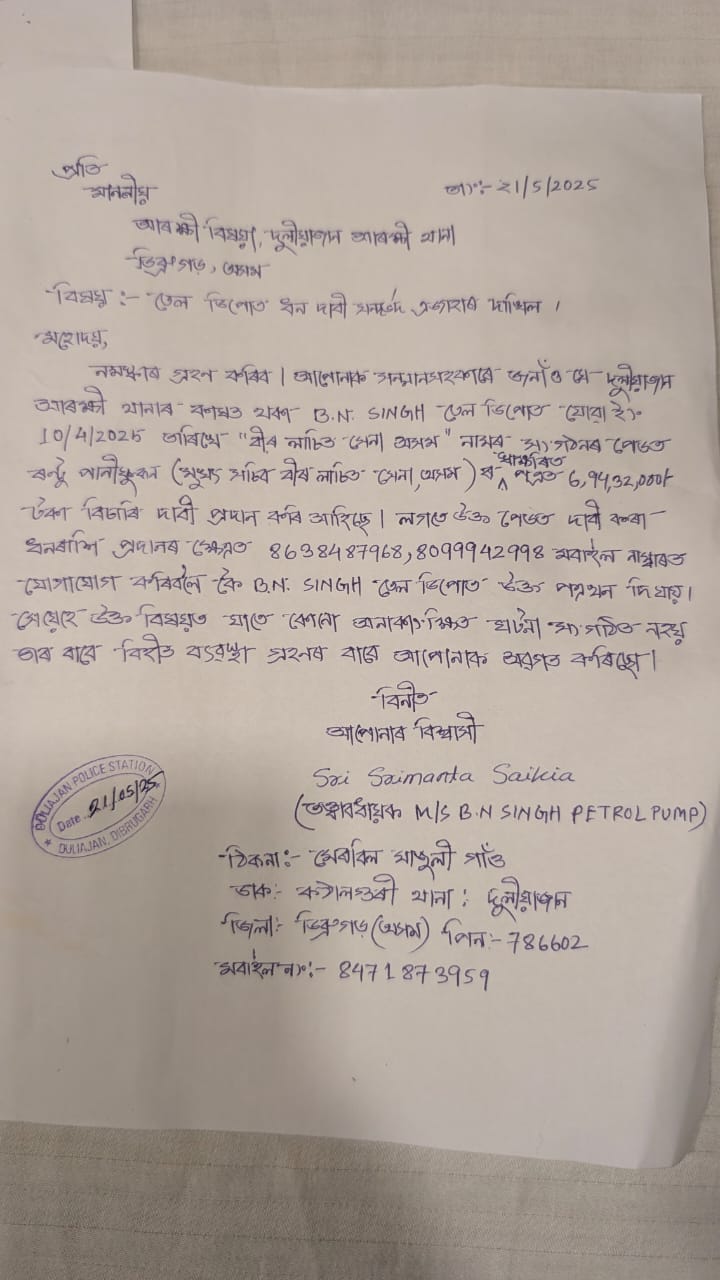 প্ৰতি
মাননীয়
তাং:- 21/5/2025
আৰক্ষী বিষয়া, দুলীয়াজান আৰক্ষী থানা
ডিব্ৰুগড়, অসম
বিষয় :- তেল ডিপোত ধন দাবী সন্দৰ্ভত এজাহাৰ দাখিল ।
মহোদয়,
নমস্কাৰ গ্ৰহণ কৰিব । আপোনাক সন্মানসহকাৰে জনাওঁ যে দুলীয়াজান
আৰক্ষী থানাৰ কাষত থকা B.N. SINGH তেল ডিপোত যোৱা ইং
10/4/2025 তাৰিখে "বীৰ লাচিত সেনা অসম" নামৰ সংগঠনৰ পেডত
ৰন্টু পানীফুকন (মুখ্য সচিব বীৰ লাচিত সেনা, অসম) ৰ স্বাক্ষৰিত পত্ৰত 6,94,32,000/-
টকা বিচাৰি দাবী প্ৰদান কৰি আহিছে । লগতে উক্ত পেডত দাবী কৰা
ধনৰাশি প্ৰদানৰ ক্ষেত্ৰত 8638487968, 8099942998 মবাইল নাম্বাৰত
যোগাযোগ কৰিবলৈ কৈ B.N. SINGH তেল ডিপোত উক্ত পত্ৰখন দি যায় ।
সেয়েহে উক্ত বিষয়ত যাতে কোনো অনাকাংক্ষিত ঘটনা সংগঠিত নহয়
তাৰ বাবে বিহীত ব্যৱস্থা গ্ৰহনৰ বাবে আপোনাক অৱগত কৰিছো ।
বিনীত
আপোনাৰ বিশ্বাসী
Sri Srimanta Saikia
(তত্বাৱধায়ক M/S B.N SINGH PETROL PUMP)
DULIAJAN POLICE STATION
Date 21/05/25
DULIAJAN, DIBRUGARH
ঠিকনা:- মেৰবিল মাজুলী গাঁও
ডাক:- কঠালগুৰী থানা : দুলীয়াজান
জিলা:- ডিব্ৰুগড় (অসম) পিন:- 786602
মবাইল নং:- 8471873959